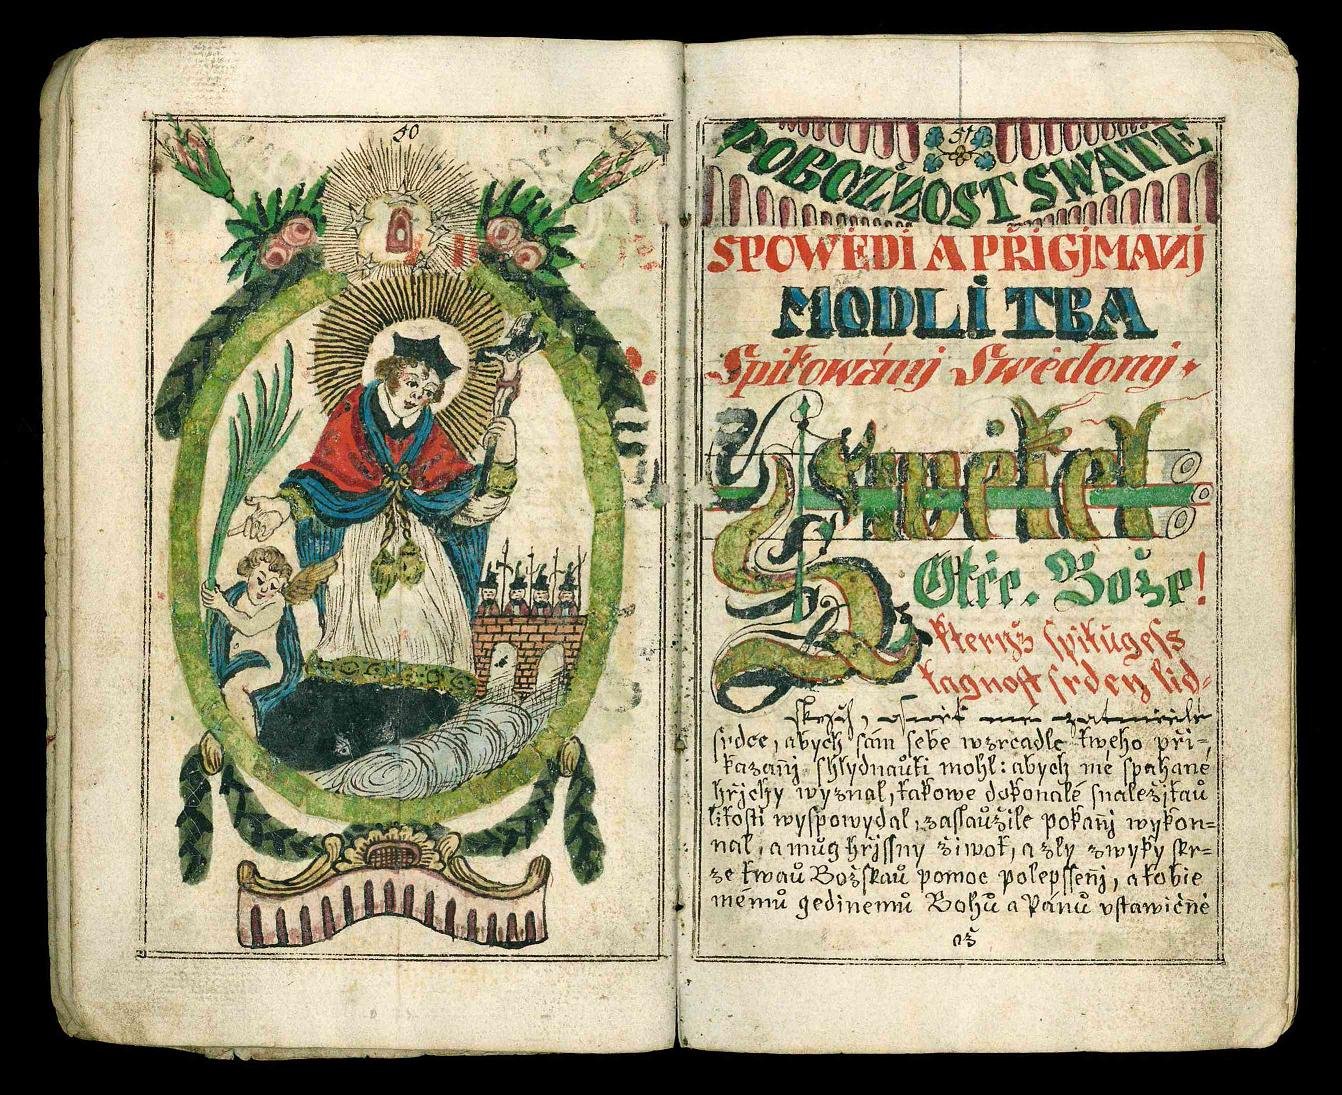 50
51
POBOZŽNOST SWATE
SPOWĚDI A PRIGJMANJ
MODLITBA
Spitowánj Swědomj.
Swětel
Otče. Bože!
kteryž spitugess
tagnost srdcy lid-
skych, oswět mé zatmělé
srdce, abych sám sebe w zrcadle tweho při-
kazanj shlydnauti mohl: abych mé spahané
hřjchy wyznal, takowe dokonalé snaležitau
litosti wyspowydal, zaslaužile pokanj wykon=
nal, a mug hřjssny žiwot, a zly zwyky skr=
ze twau Božskau pomoc polepssenj, a tobie
mému gedinemů Bohů a Pánů ustawičně
až